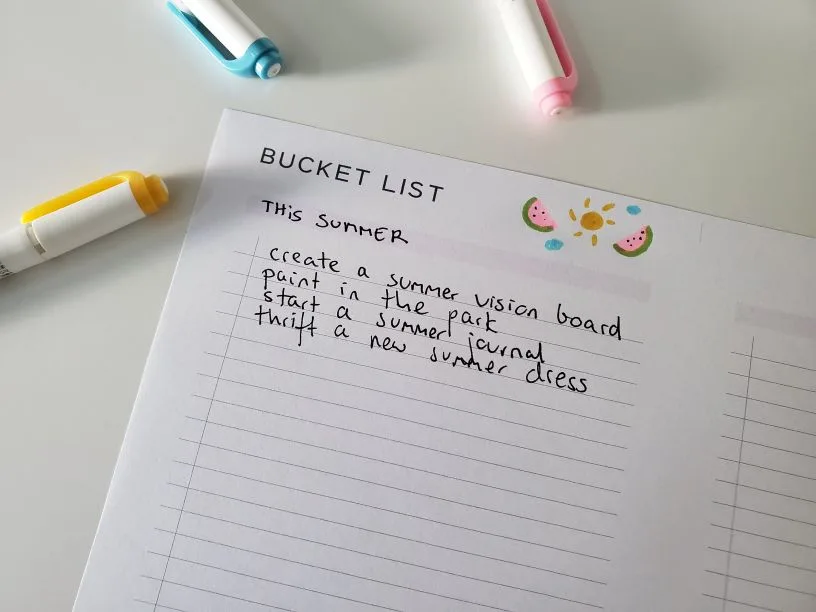 BUCKET LIST
THIS SUMMER
create a summer vision board
paint in the park
start a summer journal
thrift a new summer dress